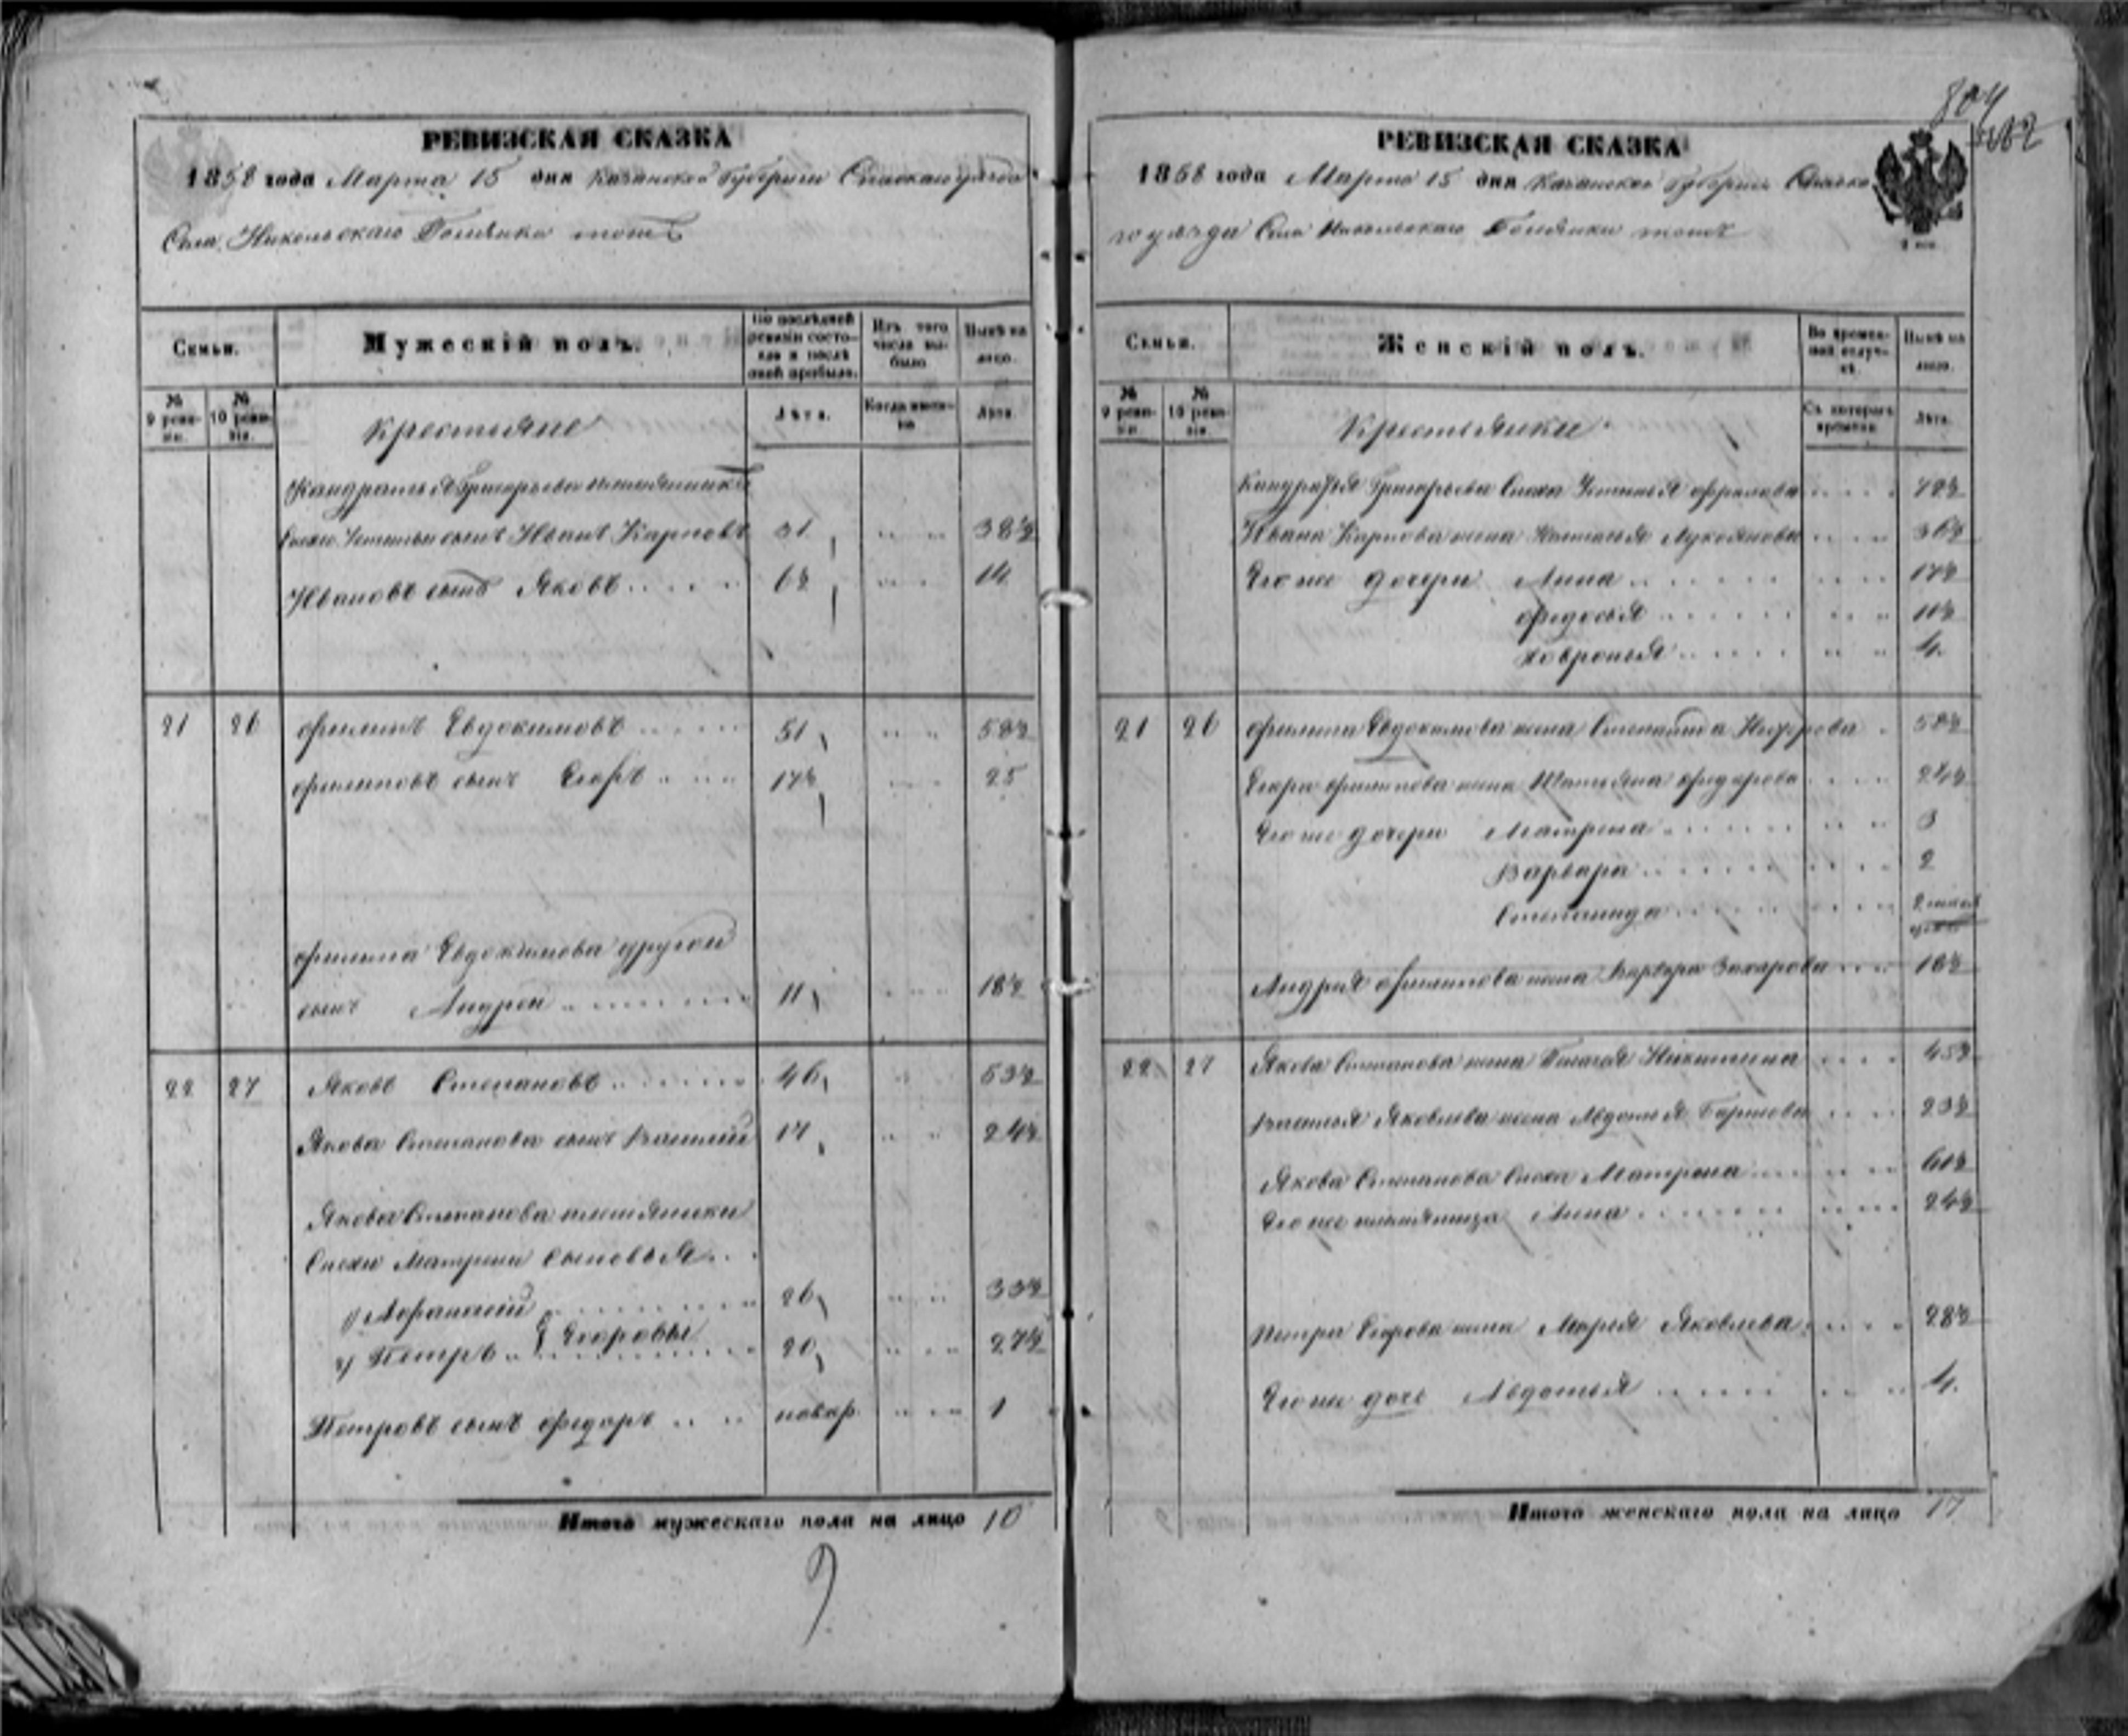 РЕВИЗСКАЯ СКАЗКА
1858 года Марта 15 дня Казанской Губернии Спаскаго уезда
Села Никольскаго тожъ
Семьи.
Мужескій полъ.
По послѣдней ревизіи состояло и послѣ оной прибыло.
Изъ того числа выбыло
Нынѣ на лицо.
№ 9 ревизіи.
№ 10 ревизіи.
Крестьяне
Лѣта.
Когда именно
Лѣта.
Кандратья Григорьева племянника
Снохи Устиньи сынъ Иванъ Карповъ 31 38½
Ивановъ сынъ Яковъ 6½ 14
21 26 Филипъ Евдокимовъ 51 58½
Филиповъ сынъ Егоръ 17½ 25
Филипа Евдокимова другой
сынъ Андрей 11 18½
22 27 Яковъ Степановъ 46 53½
Якова Степанова сынъ Василій 17 24½
Якова Степанова племянники
Снохи Матрены сыновья
1) Афанасій 26 33½
Егоровы
2) Петръ 20 27½
Петровъ сынъ Федоръ новор. 1
Итого мужескаго пола на лицо 10
804
РЕВИЗСКАЯ СКАЗКА
1858 года Марта 15 дня Казанской Губернии Спаска
го уезда Села Никольскаго тожъ
Семьи.
Женскій полъ.
Во временной отлучкѣ.
Нынѣ на лицо.
№ 9 ревизіи.
№ 10 ревизіи.
Крестьянки
Съ котораго времени.
Лѣта.
Кандратья Григорьева Сноха Устинья Фролова 72½
Ивана Карпова жена Наталья Лукоянова 36½
Его же дочери Анна 17½
Федосья 11½
Ховронья 4
21 26 Филипа Евдокимова жена Степанида 58½
Егора Филипова жена Татьяна Федорова 24½
Его же дочери Матрена 3
Варвара 2
Степанида 2
Андрея Филипова жена Варвара Захарова 18½
22 27 Якова Степанова жена Пелагея Никитина 45½
Василья Яковлева жена Авдотья 23½
Якова Степанова Сноха Матрена 61½
Его же племянница Анна 24½
Петра Егорова жена Марья Яковлева 28½
Его же дочь Авдотья 4
Итого женскаго пола на лицо 17